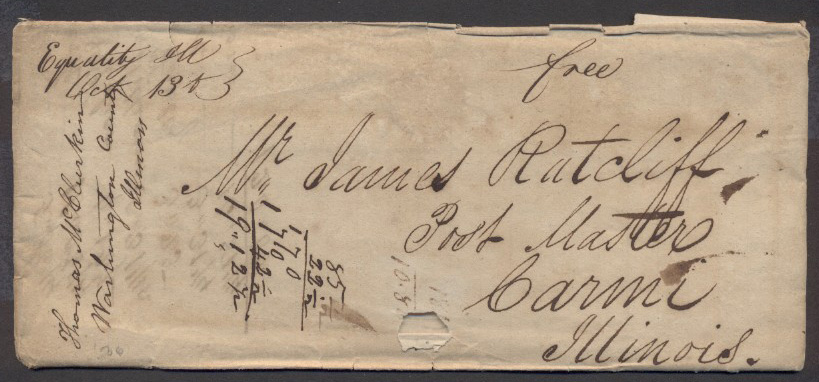 Equality Ill
Oct 13th
free
Mr. James Ratcliff
Post Master
Carmi
Illinois.
Thomas McClurkin
Washington County
Illinois
85
22
170
170
42
19